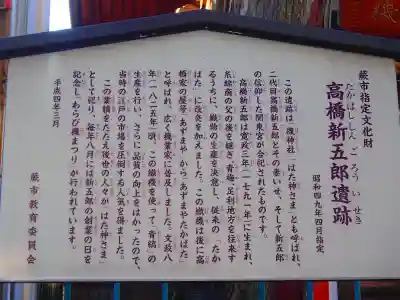 蕨市指定文化財
たかはししんごろういせき
高橋新五郎遺跡
昭和四九年四月指定
この遺跡は「機神社」「はた神さま」とも呼ばれ、
二代目高橋新五郎とその妻いせ、そして新五郎
の信仰した関東宮が合祀されたものです。
高橋新五郎は寛政三年(一七九一年)に生まれ、
商の父の後を継ぎ、青梅、足利地方を往来す
るうちに、織物の生産を決意し、従来の「たか
はた」に改良を加えました。この織機は後に高
橋家の屋号「あづまや」から「あづまやたかばた」
と呼ばれ、広く機業家に普及しました。文政八
年(一八二五年)頃、この織機を使って「青縞」の
生産を行い、さらに品質の向上をはかったので、
当時の江戸の市場を圧倒する人気を得ました。
この業績をたたえ後世の人々が「はた神さま」
として祀り、毎年八月には新五郎の創業の日を
記念し「わらび機まつり」が行われています。
平成四年三月
蕨市教育委員会